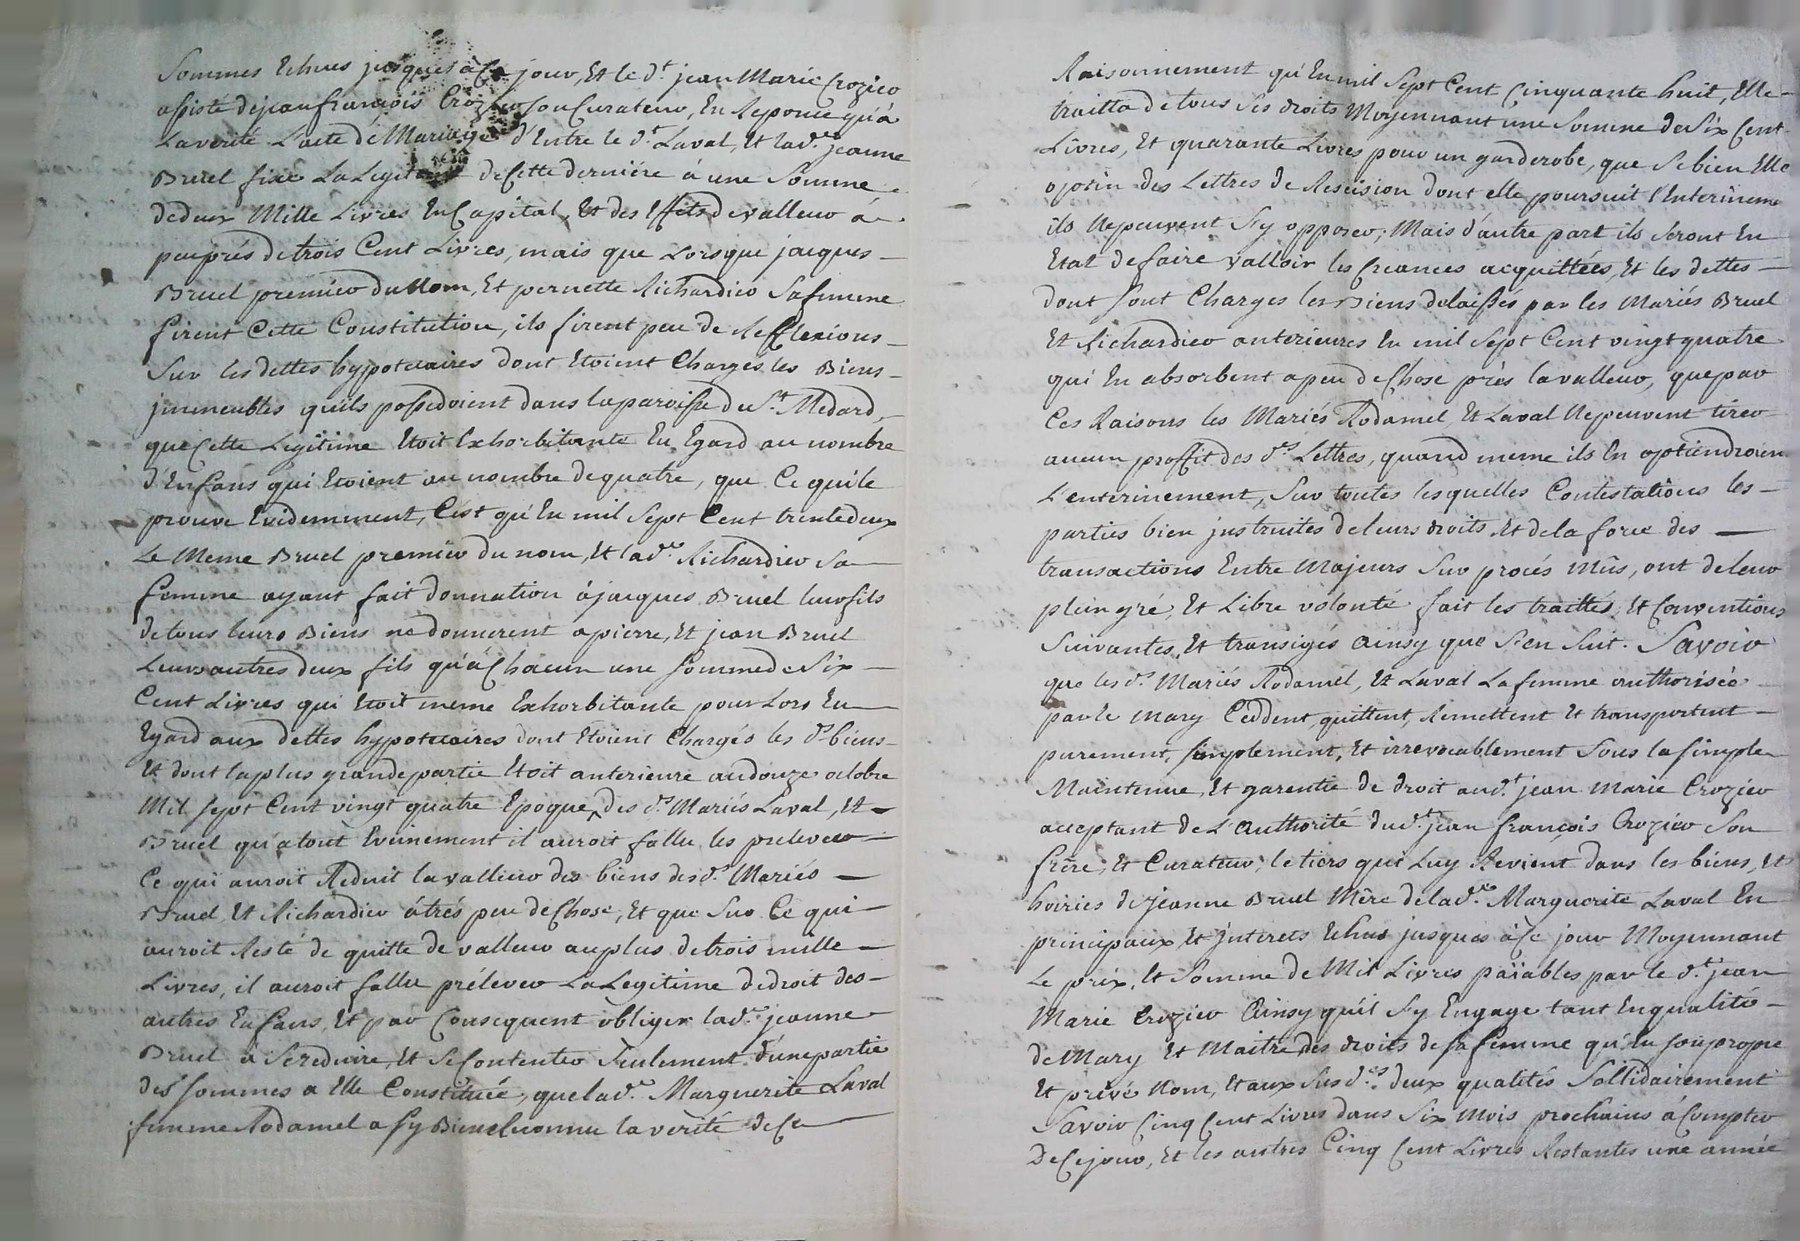 Sommes Echues jusques à Ce jour, Et le d.t jean Marie Crozier
assisté de jean françois Crozier son Curateur, En Reponce qu'à
La verité L'acte de Mariage d'Entre le d.t Laval, Et lad.e jeanne
Bruel fixe La Legitime de Cette derniére à une Somme
de deux Mille Livres En Capital, Et des Effets de valleur à
peu prés de trois Cent Livres, mais que Lorsque jacques
Bruel premier du Nom, Et pernette Richardier Sa femme
firent Cette Constitution, ils firent peu de Refflexions
Sur les dettes hypotecaires dont Etoient Charges les Biens
jmmeubles qu'ils possedoient dans la paroisse du S.t Medard,
que Cette Legitime Etoit Exhorbitante En Egard au nombre
d'Enfans qui Etoient au nombre de quatre, que Ce qui le
prouve Evidemment, C'est qu'En mil Sept Cent trente deux
Le Meme Bruel premier du nom, Et lad.e Richardier Sa
femme ayant fait donnation à jacques Bruel leur fils
de tous leurs Biens ne donnerent a pierre, Et jean Bruel
Leurs autres deux fils qu'à Chacun une Somme de Six
Cent Livres qui Etoit meme Exhorbitante pour Lors En
Egard aux dettes hypotecaires dont Etoient Chargés les d.s biens
Et dont la plus grande partie Etoit anterieure au douze octobre
Mil Sept Cent vingt quatre Epoque des d.s Mariés Laval, Et
Bruel qu'a tout Evenement il auroit fallu les prelever
Ce qui auroit Reduit la valleur des biens des d.s Mariés
Bruel Et Richardier à trés peu de Chose, Et que Sur Ce qui
auroit Resté de quitte de valleur au plus de trois mille
Livres, il auroit fallu prélever La Legitime de droit des
autres Enfans, Et par Consequent obliger lad.e jeanne
Bruel à Se reduire, Et Se Contenter Seulement d'une partie
des Sommes a Elle Constituée, que lad.e Marguerite Laval
femme Rodamel a Sy Bien Reconnu la verité de Ce
Raisonnement qu'En mil Sept Cent Cinquante huit, Elle
traitta de tous Ses droits Moyennant une Somme de Six Cent
Livres, Et quarante Livres pour un garderobe, que Si bien Elle
optin des Lettres de Rescision dont elle poursuit l'Enterinem
ils Ne peuvent S'y opposer; Mais d'autre part ils Seront En
Etat de faire valloir les Creances acquittées, Et les dettes
dont Sont Charges les Biens delaissés par les Mariés Bruel
Et Richardier anterieures En mil Sept Cent vingt quatre
qui En absorbent a peu de Chose prés la valleur, que par
Ces Raisons les Mariés Rodamel, Et Laval Ne peuvent tirer
aucun proffit des d.s Lettres, quand meme ils En optiendroien
L'enterinement, Sur toutes lesquelles Contestations les
parties bien jnstruites de leurs droits, Et de la force des
transactions Entre Majeurs Sur procés Mûs, ont de leur
plein gré, Et Libre volonté fait les traittés, Et Conventions
Suivantes, Et transigés Ainsy que S'en Suit. Savoir
que les d.s Mariés Rodamel, Et Laval La femme authorisée
par le Mary Ceddent, quittent, Remettent Et transportent
purement, Simplement, Et irrevocablement Sous la Simple
Maintenue, Et garentie de droit aud.t jean Marie Crozier
acceptant de L'authorité dud.t jean françois Crozier Son
frère, Et Curateur, le tiers qui Luy Revient dans les biens, Et
hoiries de jeanne Bruel Mère de lad.e Marguerite Laval En
principaux Et jnterets Echus jusques à Ce jour Moyennant
Le prix, Et Somme de Mil Livres païables par le d.t jean
Marie Crozier Ainsy qu'il S'y Engage tant En qualité
de Mary Et Maitre des droits de Sa femme qu'En Son propre
Et privé Nom, Et aux Susd.es deux qualités Sollidairement
Savoir Cinq Cent Livres dans Six Mois prochains à Compter
De Ce jour, Et les autres Cinq Cent Livres Restantes une année